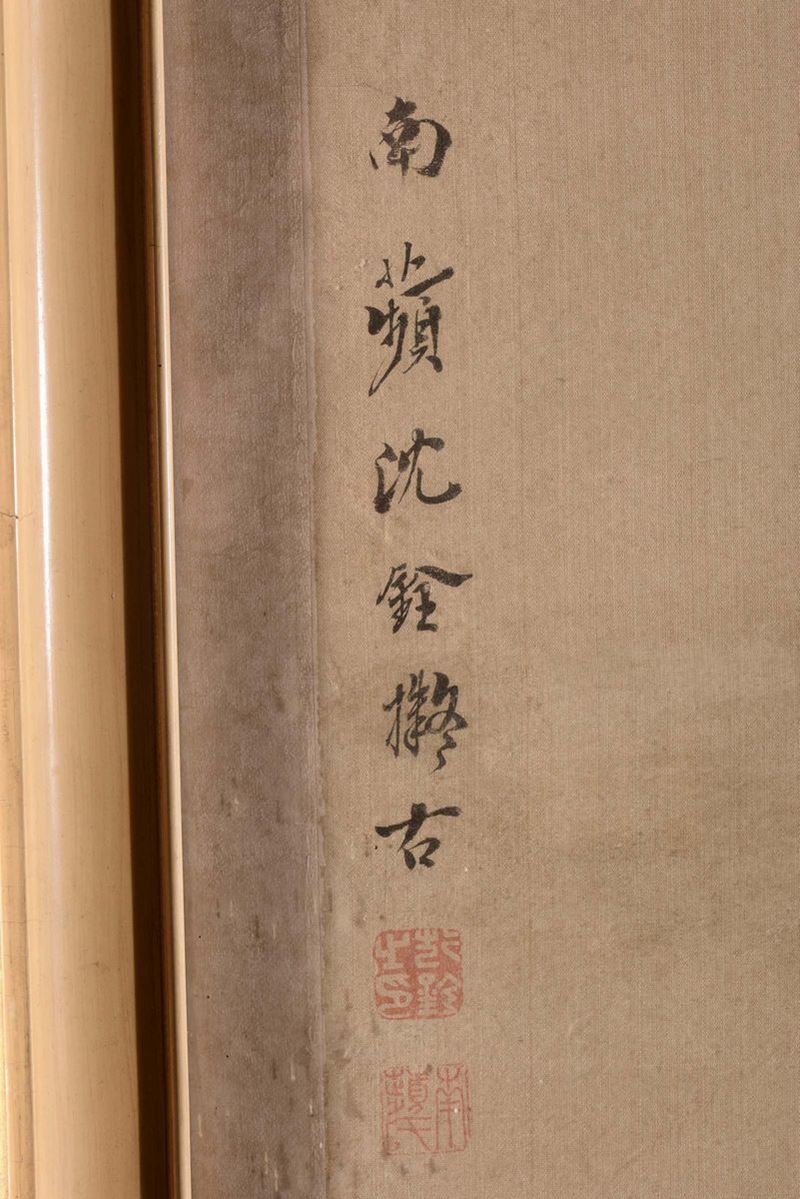 南蘋沈銓擬古
南蘋